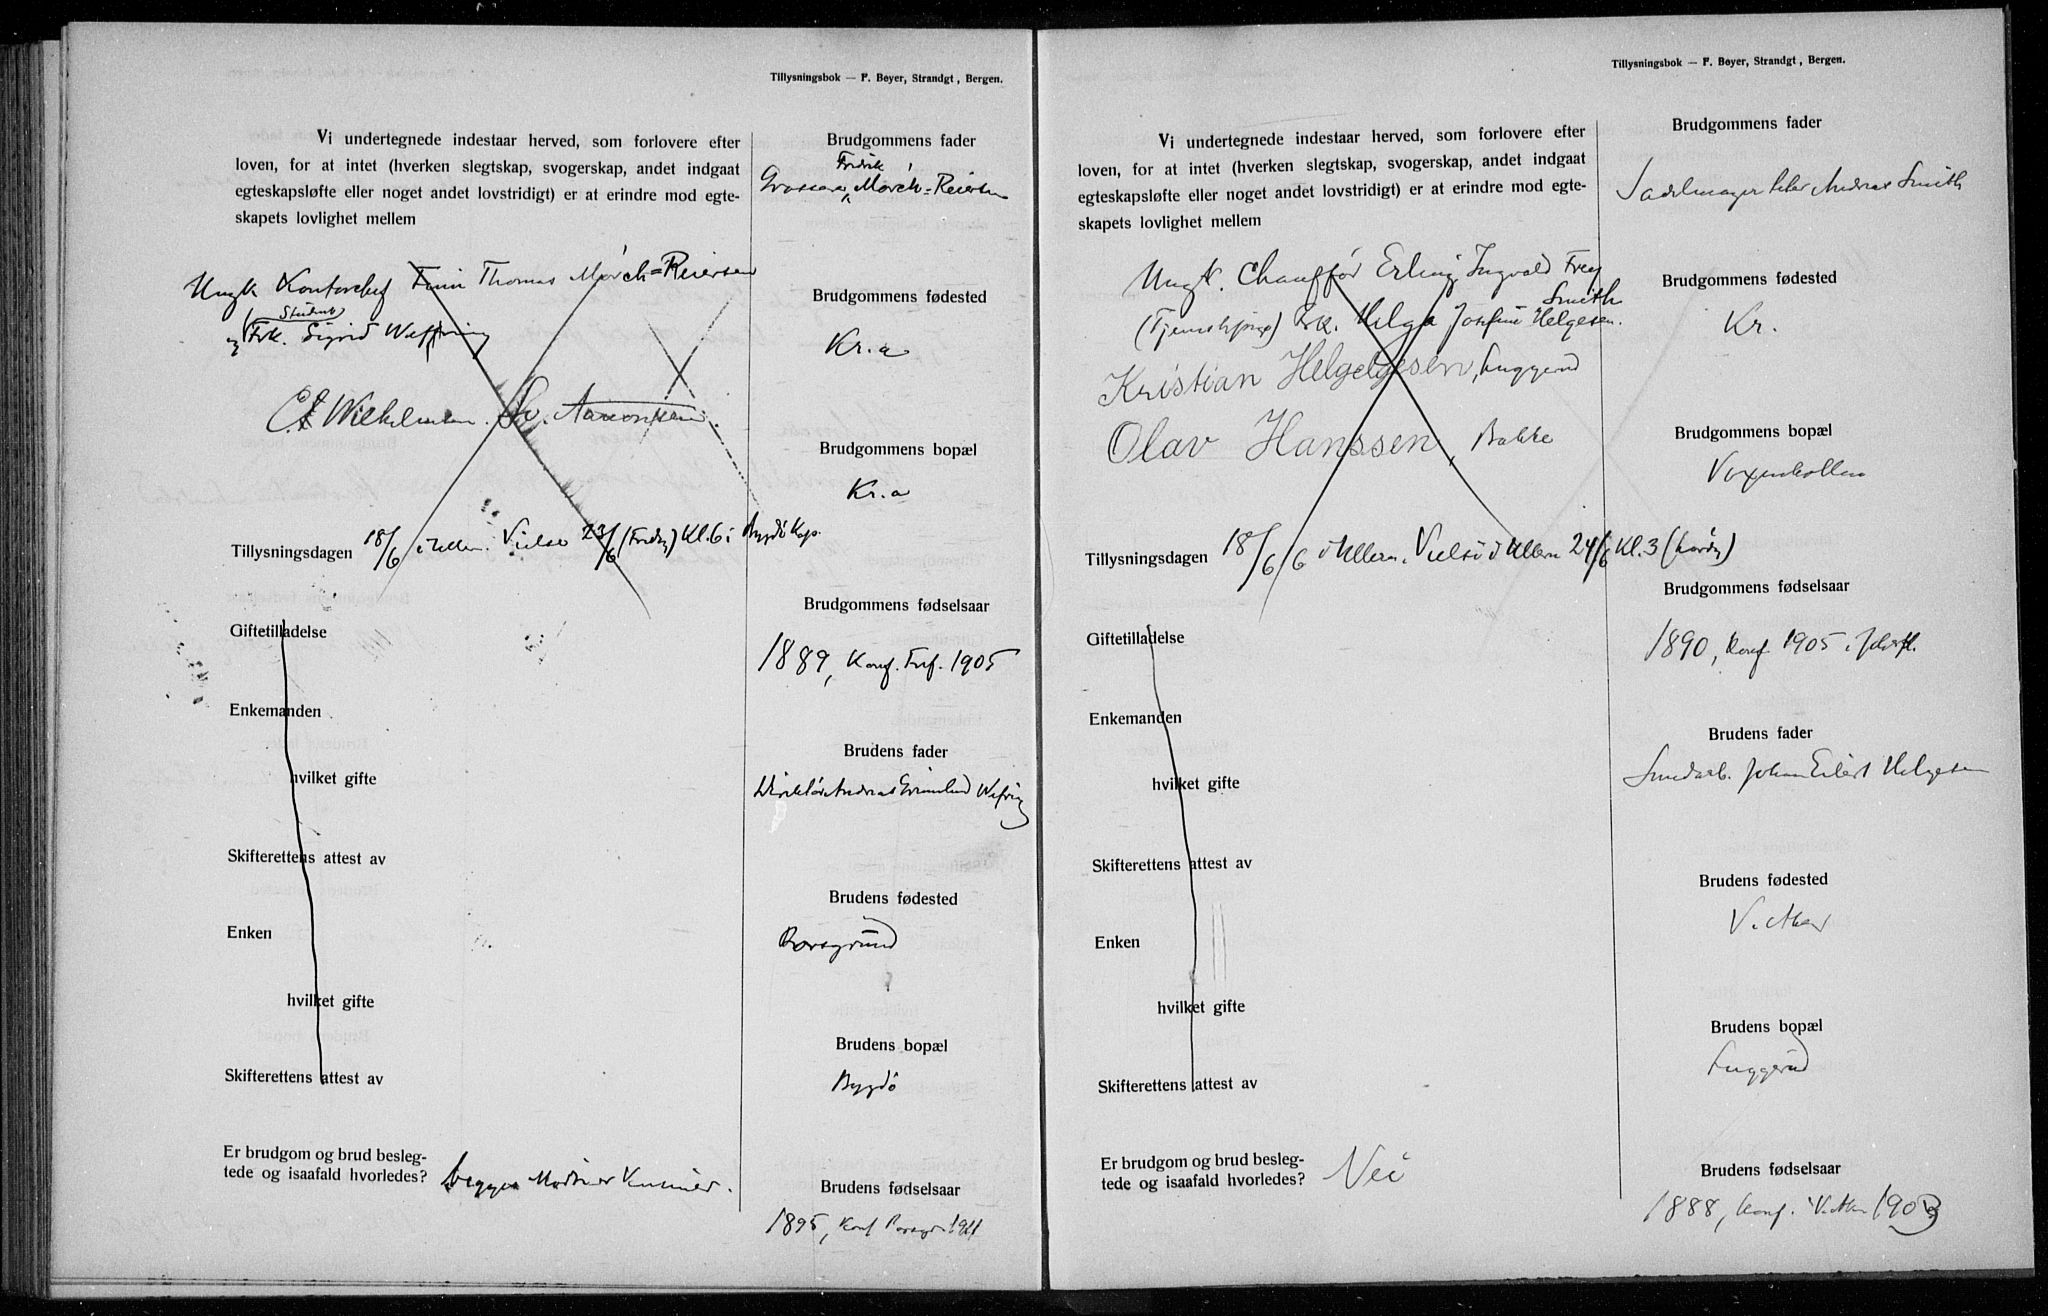 Tillysningsbok — F. Beyer, Strandgt, Bergen.
Vi undertegnede indestaar herved, som forlovere efter
loven, for at intet (hverken slegtskap, svogerskap, andet indgaat
egteskapsløfte eller noget andet lovstridigt) er at erindre mod egte-
skapets lovlighet mellem
Ungk Kontorchef Finn Thomas Mørch=Reiersen
(Student)
og Frk. Sigrid Wefring
Wilhelmsen. Aamonsen.
Tillysningsdagen 18/6 i Ullern. Vielse 23/6 (Fredag) Kl. 6 i Bygdö Kap.
Giftetilladelse
Enkemanden
hvilket gifte
Skifterettens attest av
Enken
hvilket gifte
Skifterettens attest av
Er brudgom og brud besleg-
tede og isaafald hvorledes? begges Mødre er Kusiner.
Brudgommens fader
Fredrik
Grosserer Mørch-Reiersen
Brudgommens fødested
Kr.a
Brudgommens bopæl
Kr.a
Brudgommens fødselsaar
1889, Konf. Frf. 1905
Brudens fader
Direktør Andreas Grimlund Wefring
Brudens fødested
Porsgrund
Brudens bopæl
Bygdö
Brudens fødselsaar
1895, Konf Porsgr. 1911
Tillysningsbok — F. Beyer, Strandgt, Bergen.
Vi undertegnede indestaar herved, som forlovere efter
loven, for at intet (hverken slegtskap, svogerskap, andet indgaat
egteskapsløfte eller noget andet lovstridigt) er at erindre mod egte-
skapets lovlighet mellem
Ungk. Chauffør Erling Ingvald Frey
Smith
(Tjenestepige) Frk. Helga Josefine Helgesen.
Kristian Helgelgesen, Luggerud
Olav Hanssen, Bakke
Tillysningsdagen 18/6 6 i Ullern. Vielse i Ullern 24/6 Kl. 3 (Lørdg)
Giftetilladelse
Enkemanden
hvilket gifte
Skifterettens attest av
Enken
hvilket gifte
Skifterettens attest av
Er brudgom og brud besleg-
tede og isaafald hvorledes? Nei
Brudgommens fader
Sadelmager Peter Andreas Smith
Brudgommens fødested
Kr.
Brudgommens bopæl
Voxenkollen
Brudgommens fødselsaar
1890, Konf 1905 i
Brudens fader
Johan Eilert Helgesen
Brudens fødested
V. Aker
Brudens bopæl
Luggerud
Brudens fødselsaar
1888, Konf. i V. Aker 1903